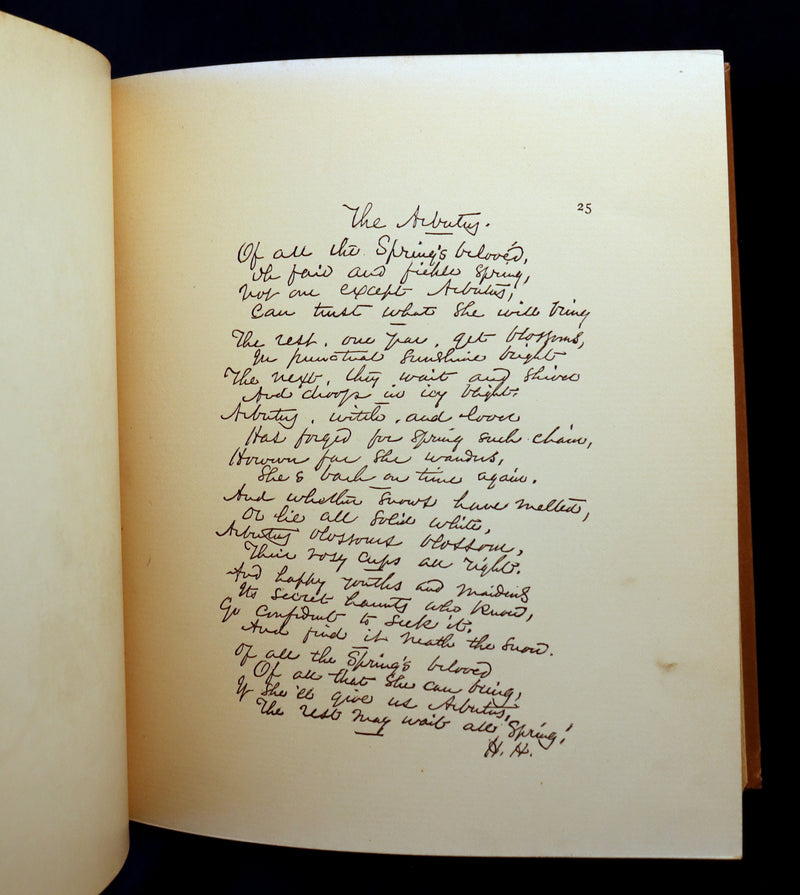 25
The Arbutus.
Of all the Spring's belovéd,
Oh fair and fickle Spring,
Not one except Arbutus,
Can trust what she will bring
The rest, one year, get blossoms,
In punctual sunshine bright
The next, they wait and shiver
And droop in icy blight.
Arbutus, witch, and lover
Has forged for Spring such chain,
However far she wanders,
She's back on time again.
And whether snows have melted,
Or lie all solid white,
Arbutus blossoms blossom,
Their rosy cups all right.
And happy youths and maidens
Its secret haunts who know,
Go confident to seek it.
And find it neath the snow.
Of all the Spring's beloved
Of all that she can bring,
If she'll give us Arbutus,
The rest may wait all Spring!
H. H.